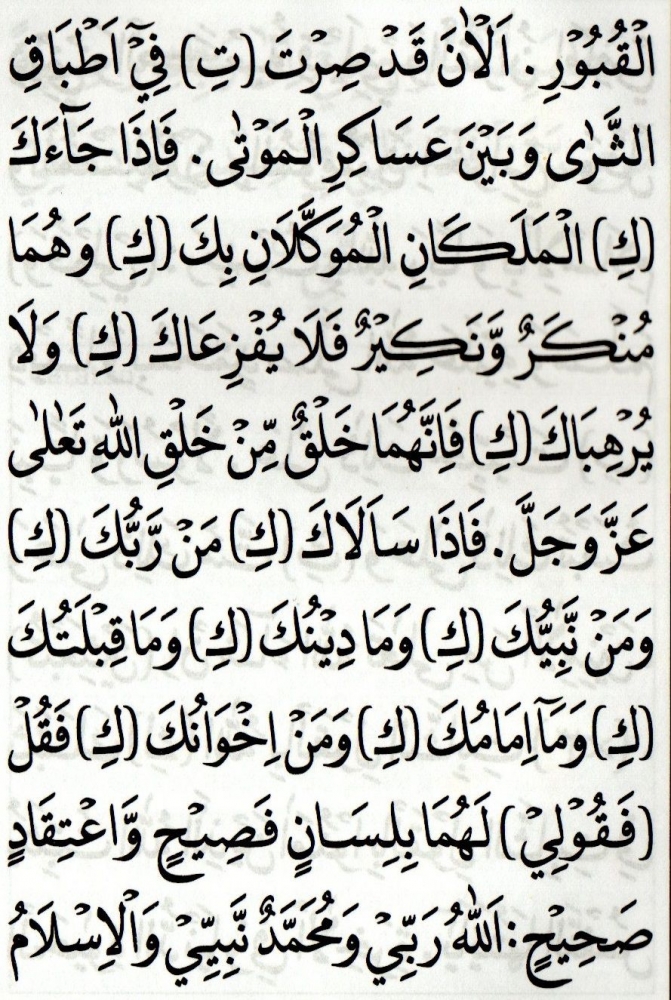 الْقُبُوْرِ. اَلْاٰنَ قَدْ صِرْتَ (تِ) فِيْٓ اَطْبَاقِ
الثَّرٰى وَبَيْنَ عَسَاكِرِ الْمَوْتٰى. فَاِذَا جَآءَكَ
(كِ) الْمَلَكَانِ الْمُوَكَّلَانِ بِكَ (كِ) وَهُمَا
مُنْكَرٌ وَّنَكِيْرٌ فَلَا يُفْزِعَاكَ (كِ) وَلَا
يُرْهِبَاكَ (كِ) فَاِنَّهُمَا خَلْقٌ مِّنْ خَلْقِ اللّٰهِ تَعٰلٰى
عَزَّ وَجَلَّ. فَاِذَا سَاَلَاكَ (كِ) مَنْ رَّبُّكَ (كِ)
وَمَنْ نَّبِيُّكَ (كِ) وَمَا دِيْنُكَ (كِ) وَمَا قِبْلَتُكَ
(كِ) وَمَآ اِمَامُكَ (كِ) وَمَنْ اِخْوَانُكَ (كِ) فَقُلْ
(فَقُوْلِيْ) لَهُمَا بِلِسَانٍ فَصِيْحٍ وَّاعْتِقَادٍ
صَحِيْحٍ: اَللّٰهُ رَبِّيْ وَمُحَمَّدٌ نَّبِيِّيْ وَالْاِسْلَامُ